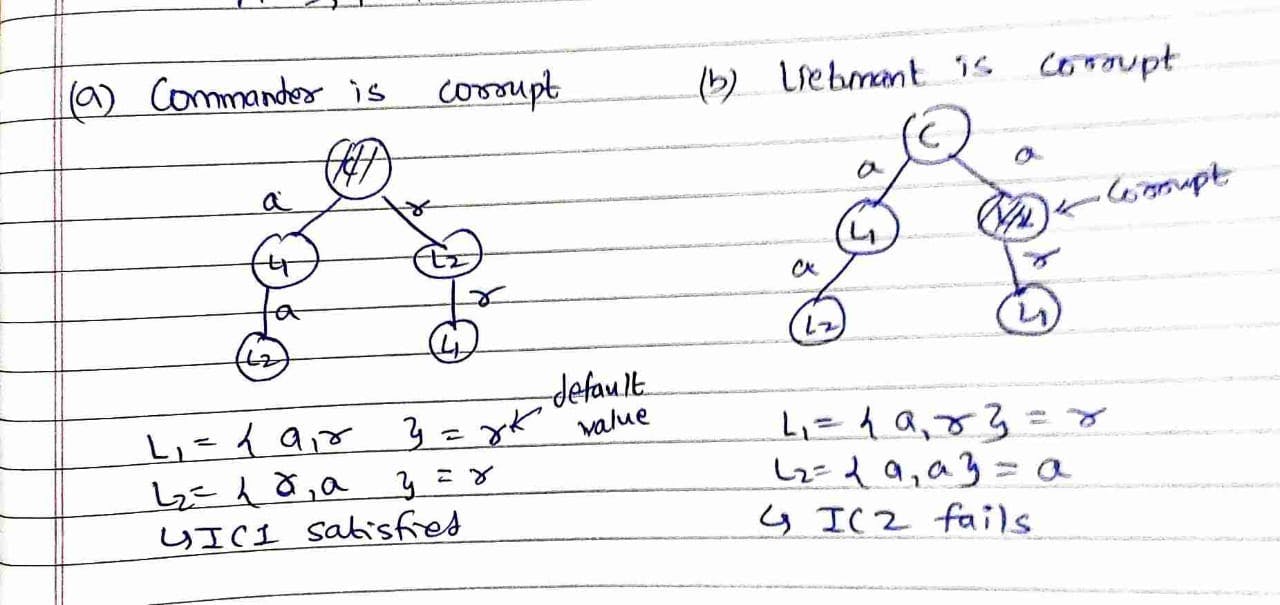 (a) Commander is corrupt
a
r
L1
L2
a
r
L2
L1
default
value
L1 = { a, r } = r
L2 = { r, a } = r
↳ IC1 satisfied
(b) Lietmant is corrupt
C
a
a
corrupt
L1
a
r
L2
L1
L1 = { a, r } = r
L2 = { a, a } = a
↳ IC2 fails